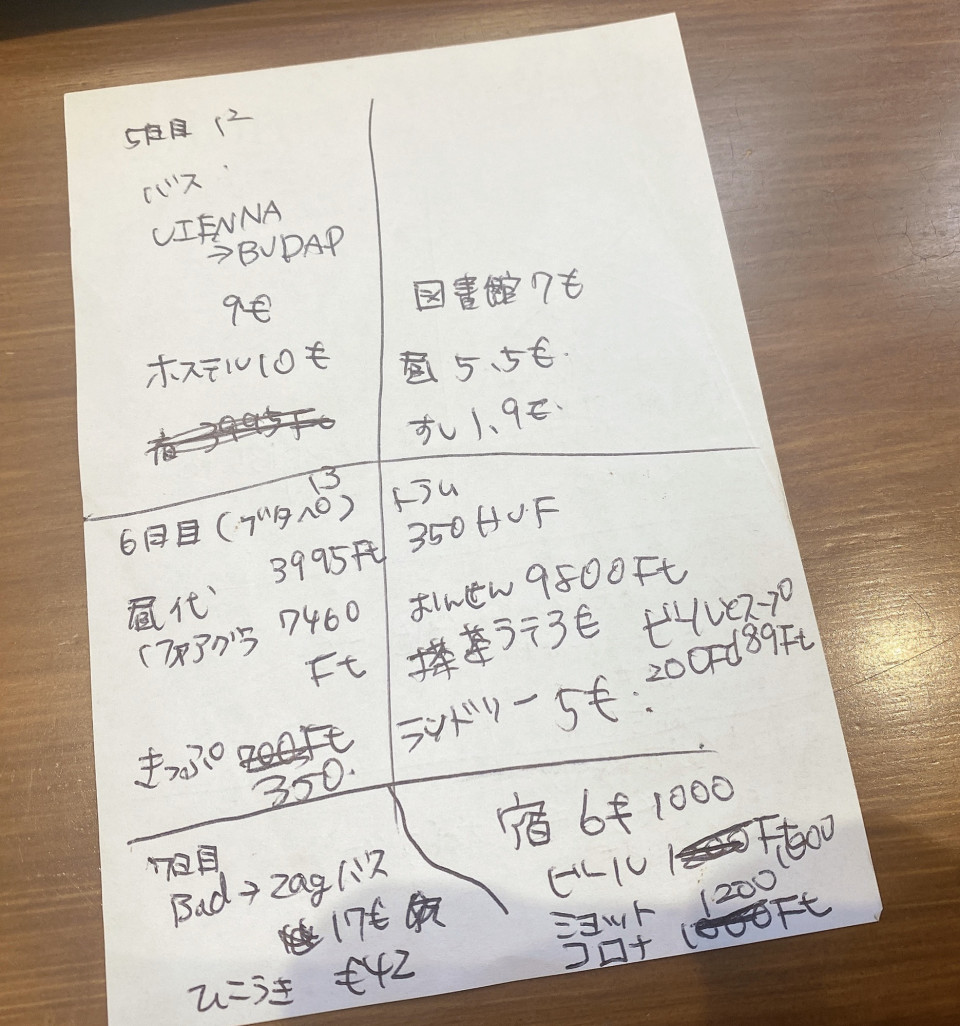 5日目 12
バス
VIENNA
→BUDAP
9€
ホステル10€
宿 3995Ft
図書館7€
昼 5.5€.
すし1.9€.
13
6日目(ブタペ)
3995Ft
昼代
(フォアグラ 7460
Ft
きっぷ 700Ft
350.
トラム
350HUF
おんせん 9800Ft
抹茶ラテ3€
ビールとスープ
200Ft 189Ft
ランドリー 5€.
7日目
Bud→Zagバス
17€
ひこうき €42
宿 6€ 1000
ビール Ft 1000
1200
ミョット
コロナ Ft